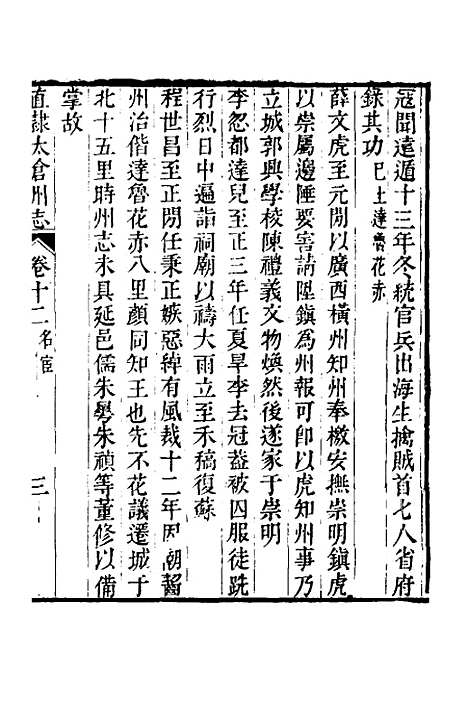 寇聞遠遁十三年冬統官兵出海生擒賊首七人省府
錄其功已上達魯花赤
薛文虎至元閒以廣西橫州知州奉檄安撫崇明鎮虎
以崇屬邊陲要害請陞鎮為州報可卽以虎知州事乃
立城郭興學校陳禮義文物煥然後遂家于崇明
李忽都達兒至正三年任夏旱李去冠蓋被囚服徒跣
行烈日中遍詣祠廟以禱大雨立至禾稿復蘇
程世昌至正閒任秉正嫉惡綽有風裁十二年因潮齧
州治偕達魯花赤八里顏同知王也先不花議遷城于
北十五里時州志未具延邑儒朱𦦨朱禎等董修以備
掌故
直隸太倉州志 卷十二 名宦 三